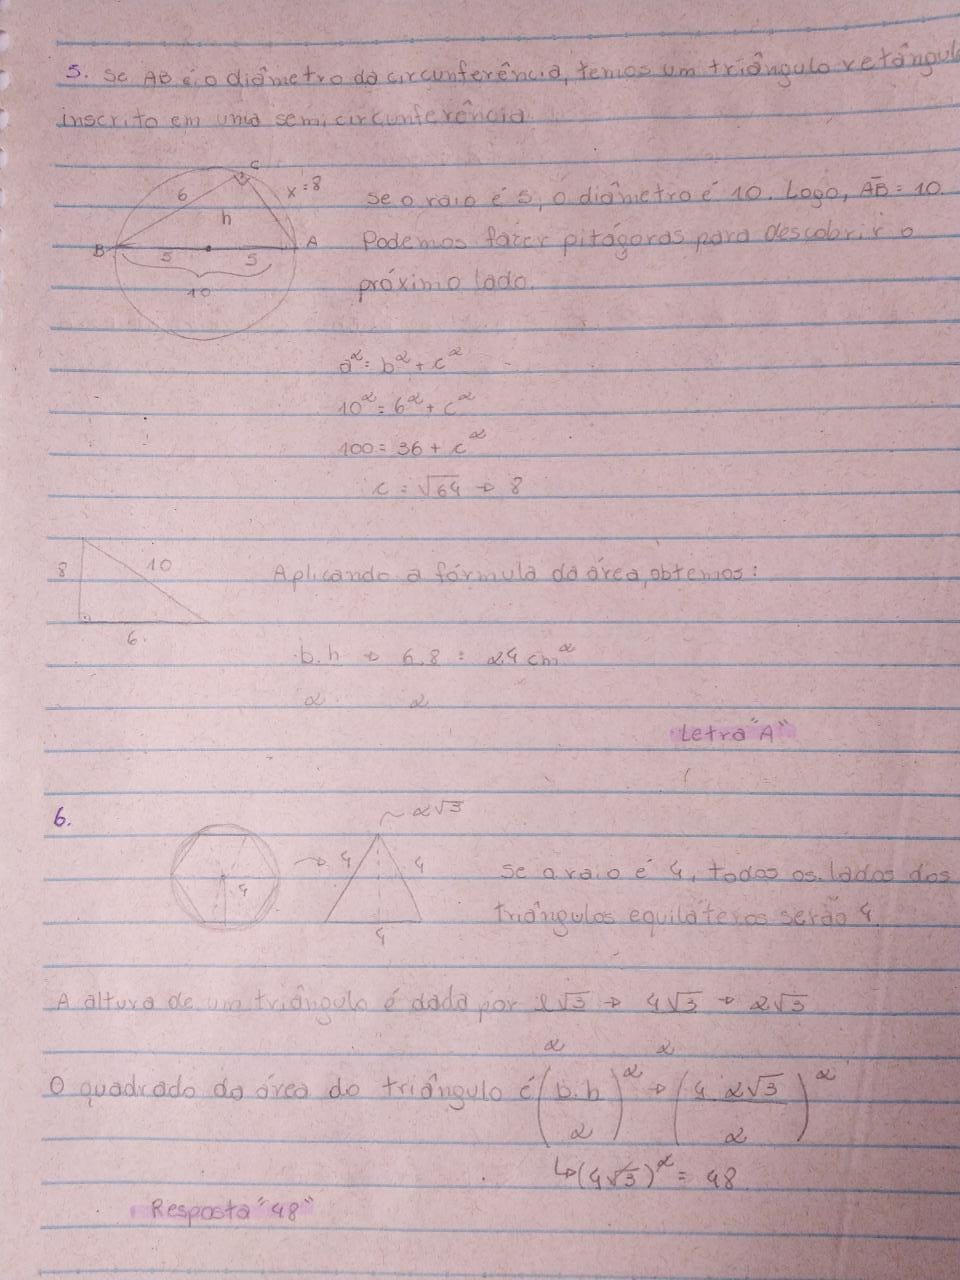 5. Se AB é o diâmetro da circunferência, temos um triângulo retângulo
inscrito em uma semicircunferência.
C
6
x = 8
h
B
A
5
5
10
Se o raio é 5, o diâmetro é 10. Logo, AB = 10.
Podemos fazer pitágoras para descobrir o
próximo lado.
a² = b² + c²
10² = 6² + c²
100 = 36 + c²
c = √64 → 8
8
10
6
Aplicando a fórmula da área, obtemos:
b.h/2 → 6.8/2 = 24 cm²
Letra "A"
6.
2√3
4
4
4
4
Se o raio é 4, todos os lados dos
triângulos equiláteros serão 4.
A altura de um triângulo é dada por l√3/2 → 4√3/2 → 2√3
O quadrado da área do triângulo é (b.h/2)² → (4.2√3/2)²
↳ (4√3)² = 48
Resposta "48"